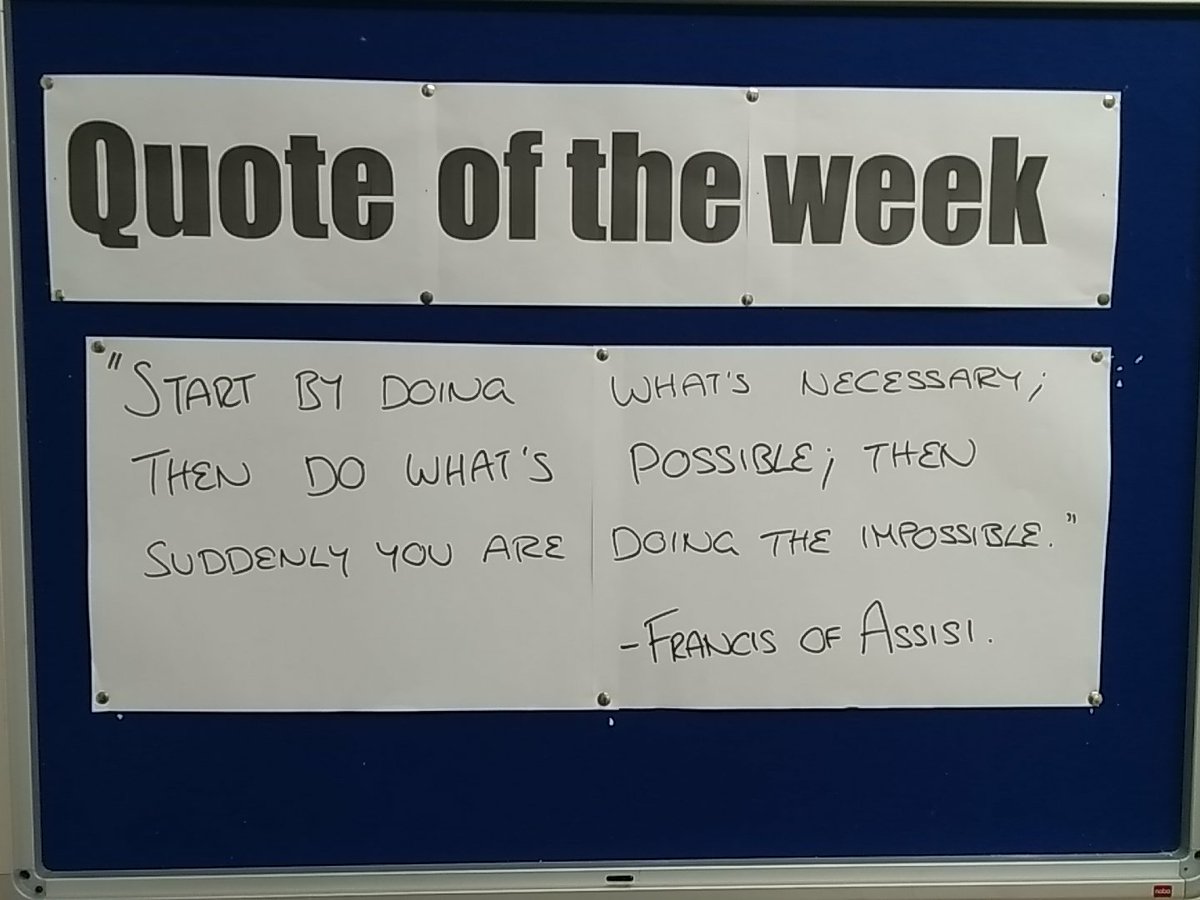 Quote of the week
"START BY DOING WHAT'S NECESSARY;
THEN DO WHAT'S POSSIBLE; THEN
SUDDENLY YOU ARE DOING THE IMPOSSIBLE."
-FRANCIS OF ASSISI.
nobo